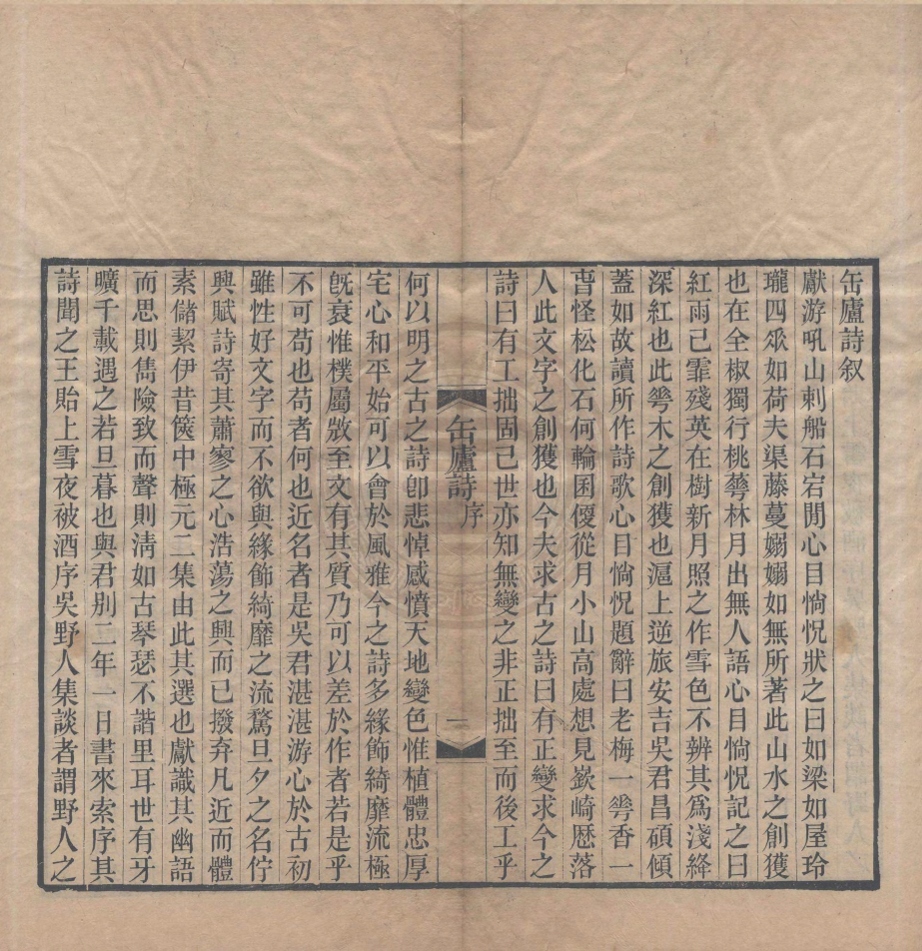 缶廬詩叙
獻游吼山刺船石宕閒心目惝怳狀之曰如梁如屋玲
瓏四𠂹如荷夫渠藤蔓嫋嫋如無所著此山水之創獲
也在全椒獨行桃蕚林月出無人語心目惝怳記之曰
紅雨已霏殘英在樹新月照之作雪色不辨其爲淺絳
深紅也此𠌶木之創獲也滬上逆旅安吉吳君昌碩傾
蓋如故讀所作詩歌心目惝怳題辭曰老梅一𠌶香一
國怪松化石何輪囷偃從月小山高處想見嶔崎歷落
人此文字之創獲也今夫求古之詩曰有正變求今之
詩曰有工拙固已世亦知無變之非正拙至而後工乎
缶廬詩 序
一
何以明之古之詩卽悲悼感憤天地變色惟植體忠厚
宅心和平始可以會於風雅今之詩多緣飾綺靡流極
旣衰惟樸屬𢿨至文有其質乃可以差於作者若是乎
不可苟也苟者何也近名者是吳君湛湛游心於古初
雖性好文字而不欲與緣飾綺靡之流鶩旦夕之名佇
興賦詩寄其蕭寥之心浩蕩之興而已撥弃凡近而體
素儲絜伊昔篋中極元二集由此其選也獻識其幽語
而思則雋險致而聲則淸如古琴瑟不諧里耳世有牙
曠千載遇之若旦暮也與君别二年一日書來索序其
詩聞之王貽上雪夜被酒序吳野人集談者謂野人之